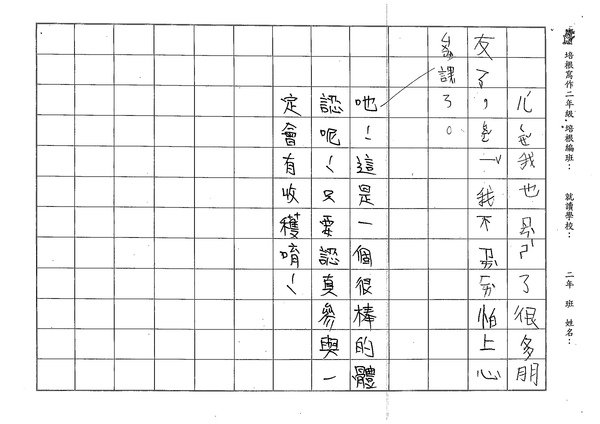 培根寫作二年級.培根編班： 就讀學校： 二年 班 姓名：
我也了很多朋
友了，我不怕上心
課了。
吔！這是一個很棒的體
認呢！只要認真參與一
定會有收穫唷！